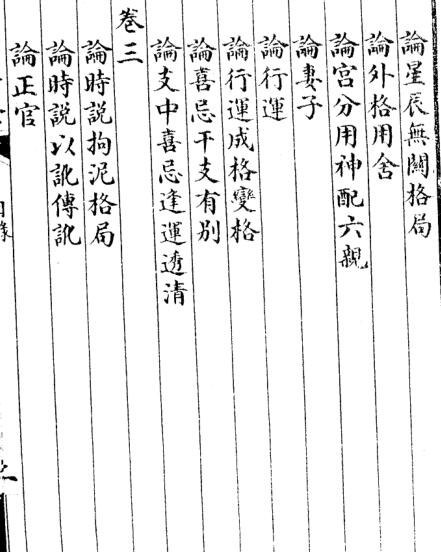 論星辰無關格局
論外格用舍
論宫分用神配六親
論妻子
論行運
論行運成格變格
論喜忌干支有别
論支中喜忌逢運透清
卷三
論時説拘泥格局
論時説以訛傳訛
論正官
目錄